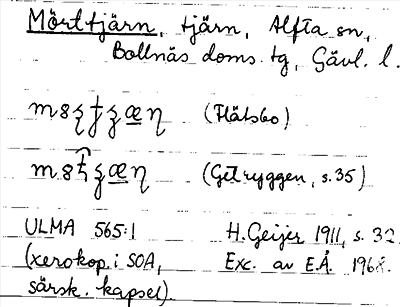 Mörttjärn, tjärn, Alfta sn,
Bollnäs doms. tg, Gävl. l.
(Flätsbo)
(Getryggen, s. 35)
ULMA 565:1 H. Geijer 1911, s. 32
(xerokop. i SOA, Exc. av E.Å. 1968.
särsk. kapsel).